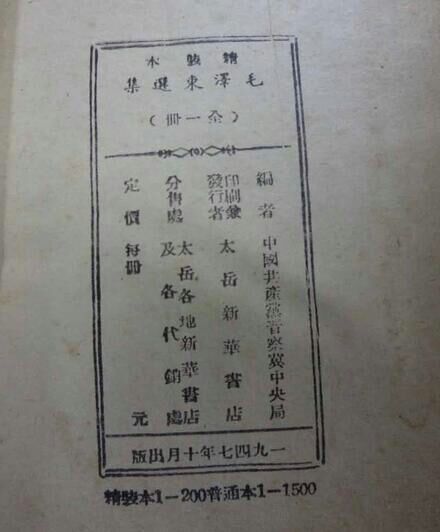 精裝本
毛澤東選集
(全一冊)
編者 中國共產黨晉察冀中央局
印刷兼
發行者 太岳新華書店
分售處 太岳各地新華書店
及各代銷處
定價 每冊 元
一九四七年十月出版
精裝本1—200普通本1—1500